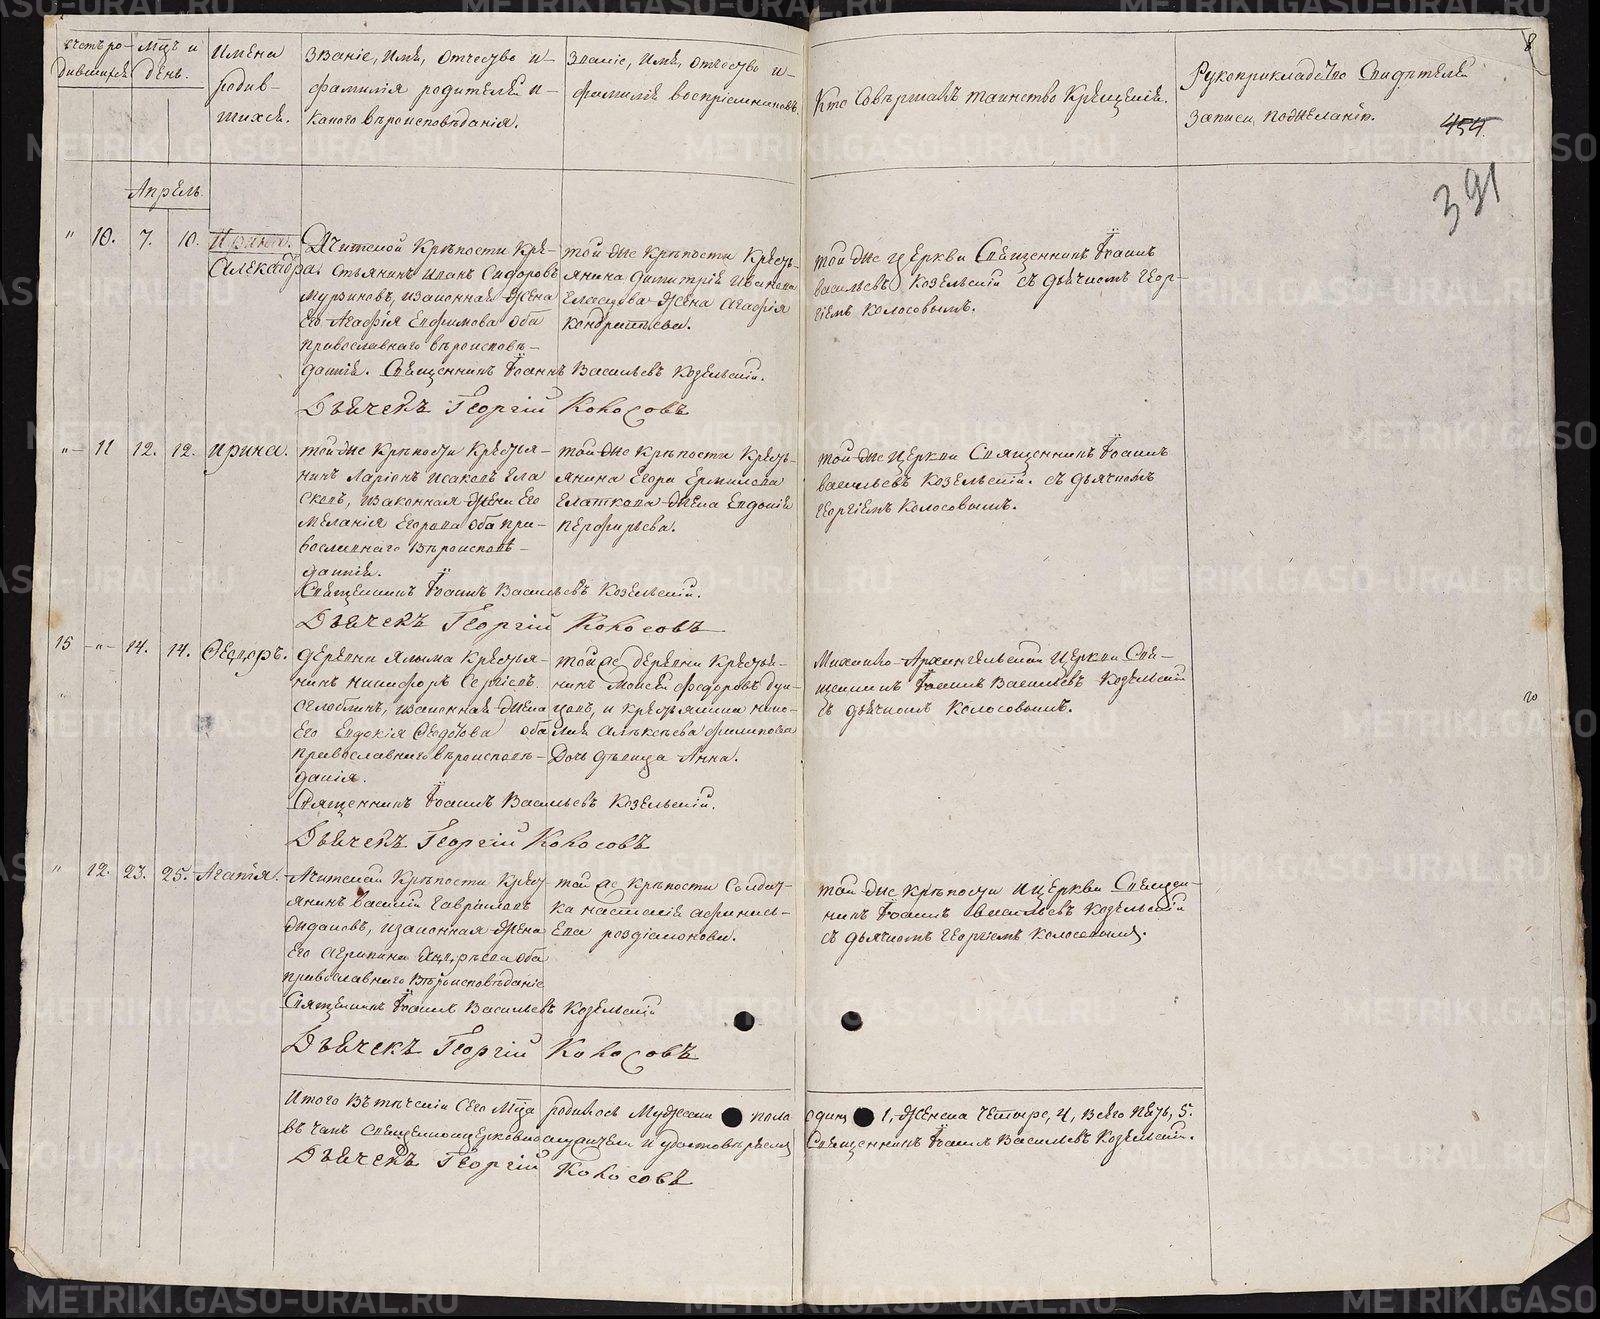 Счетъ ро-
дившихся
Мцъ и
день.
Имена
родив-
шихся.
Званіе, Имя, отчество и
фамилія родителей и
какого вѣроисповѣданія.
Званіе, Имя, отчество и
фамилія воспріемниковъ
Кто Совершалъ таинство Крещенія.
Рукоприкладство Свидѣтелей
Записи, пожеланію.
8
454
391
Апрель.
" 10. 7. 10. Ирина.
Александра.
Ачитской Крѣпости Кре-
стьянинъ Иванъ Сидоровъ
Мурзиновъ, изаконная жена
Его Агафія Евфимова оба
православнаго вѣроисповѣ-
данія. Священникъ Іоаннъ Васильевъ Козельскій.
Дьячекъ Георгій Колосовъ
той же Крѣпости Кресть-
янина Димитрія Иванова
Еласкова Жена Агафія
Кондратьева.
той же церкви Священникъ Іоаннъ
Васильевъ Козельскій съ дьячкомъ Геор-
гіемъ Колосовымъ.
" 11 12. 12. Ирина.
той же Крѣпости Крестья-
нинъ Ларіонъ Исаковъ Ела
сковъ, изаконная жена Его
Меланія Егорова оба пра-
вославнаго Вѣроисповѣ-
данія.
Священникъ Іоаннъ Васильевъ Козельскій.
Дьячекъ Георгій Колосовъ
той же Крѣпости Кресть-
янина Егора Ермилова
Еласкова жена Евдокія
Перфирьева.
той же церкви Священникъ Іоаннъ
Васильевъ Козельскій. съ дьячкомъ
Георгіемъ Колосовымъ.
15 " 14. 14. Ѳедоръ.
деревни Ялыма Крестья-
нинъ Никифоръ Сергѣевъ
изаконная жена
Его Евдокія Ѳедотова оба
православнаго вѣроисповѣ-
данія.
Священникъ Іоаннъ Васильевъ Козельскій.
Дьячекъ Георгій Колосовъ
той же деревни Крестья-
нинъ Моисей Федоровъ
и крестьянина
Алексѣева Филипова
Дочь дѣвица Анна.
Михаило-Архангельской церкви Свя-
щенникъ Іоаннъ Васильевъ Козельскій
съ дьячкомъ Колосовымъ.
" 12. 23. 25. Агапія.
Ачитской Крѣпости Крест-
янинъ Василій Гавриловъ
изаконная жена
Его Агрипина оба
православнаго Вѣроисповѣданіе
Священникъ Іоаннъ Васильевъ Козельскій
Дьячекъ Георгій Колосовъ
той же Крѣпости Солдат-
ка Настасія
той же крѣпости и церкви Священ-
никъ Іоаннъ Васильевъ Козельскій
съ дьячкомъ Георгіемъ Колосовымъ.
Итого Вътеченіи Сего Мца родилось Мужеска пола одинъ 1, Женска Четыре, 4, Всего пять, 5.
Священникъ Іоаннъ Васильевъ Козельскій.
Дьячекъ Георгій Колосовъ
METRIKI.GASO-URAL.RU